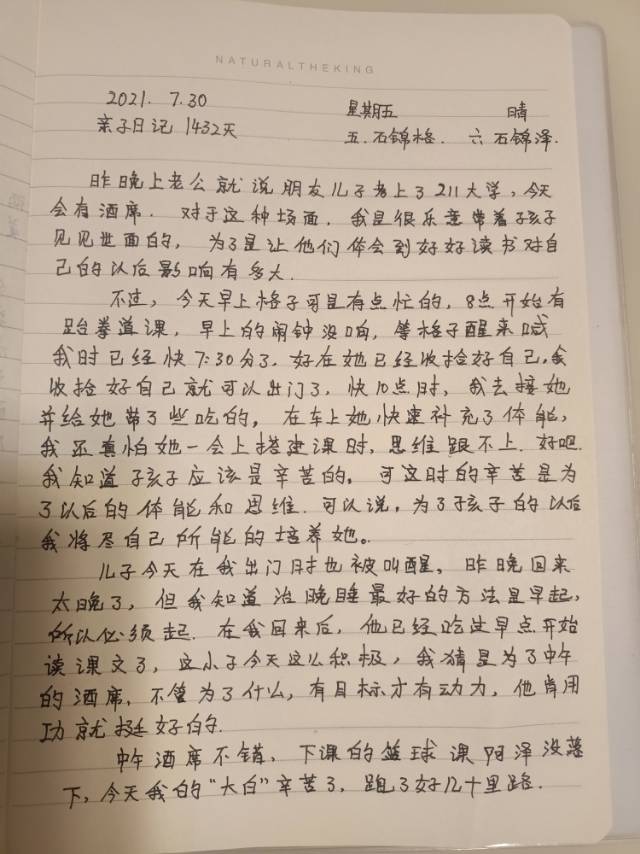 NATURALTHEKING
2021. 7.30 星期五 晴
亲子日记 1432天 五.石锦格. 六石锦泽.
昨晚上老公就说朋友儿子考上了211大学,今天
会有酒席. 对于这种场面,我是很乐意带着孩子
见见世面的, 为了是让他们体会到好好读书对自
己的以后影响有多大.
不过, 今天早上格子哥是有点忙的, 8点开始有
跆拳道课, 早上的闹钟没响, 等格子醒来喊
我时已经快7:30分了. 好在她已经收拾好自己,我
收拾好自己就可以出门了, 快10点时, 我去接她
并给她带了些吃的, 在车上她快速补充了体能,
我还真怕她一会上搭建课时, 思维跟不上. 好吧.
我知道孩子应该是辛苦的, 可这时的辛苦是为
了以后的体能和思维. 可以说,为了孩子的以后
我将尽自己所能的培养她。
儿子今天在我出门时也被叫醒, 昨晚回来
太晚了, 但我知道治晚睡最好的方法是早起,
所以必须起. 在我回来后, 他已经吃过早点开始
读课文了, 这小子今天这么积极, 我猜是为了中午
的酒席, 不管为了什么, 有目标才有动力, 他肯用
功就挺好的.
中午酒席不错, 下课的篮球课阿泽没落
下, 今天我的“大白”辛苦了, 跑了好几十里路.